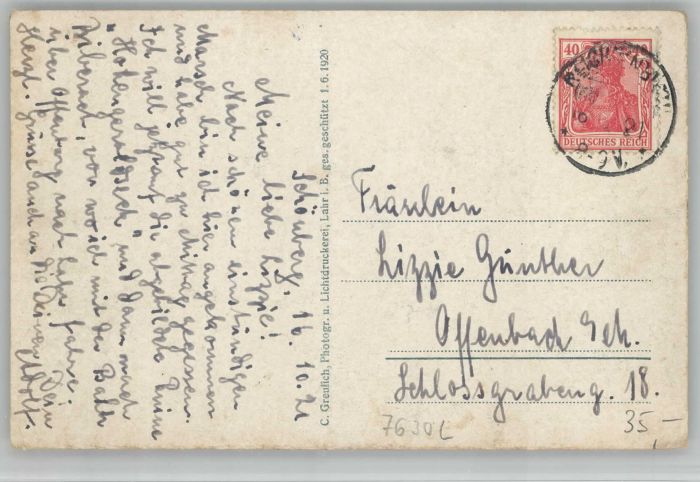 Schönberg, 16. 10. 21
Meine liebe Lizzie!
Nach schönen einstündigen
Marsch bin ich hier angekommen
und habe gut zu Mittag gegessen.
Ich will jetzt auf die abgebildete Ruine
"Hohengeroldseck" und dann nach
Biberach, von wo ich mit der Bahn
über Offenburg nach Lahr fahre.
Herzl. Grüsse auch an die Deinen Dein
Adolf.
C. Greulich, Photogr. u. Lichtdruckerei, Lahr i. B. ges. geschützt 1. 6. 1920
40
DEUTSCHES REICH
Fräulein
Lizzie Günther
Offenbach
Schlossgrabeng. 18.
7630L
35,-